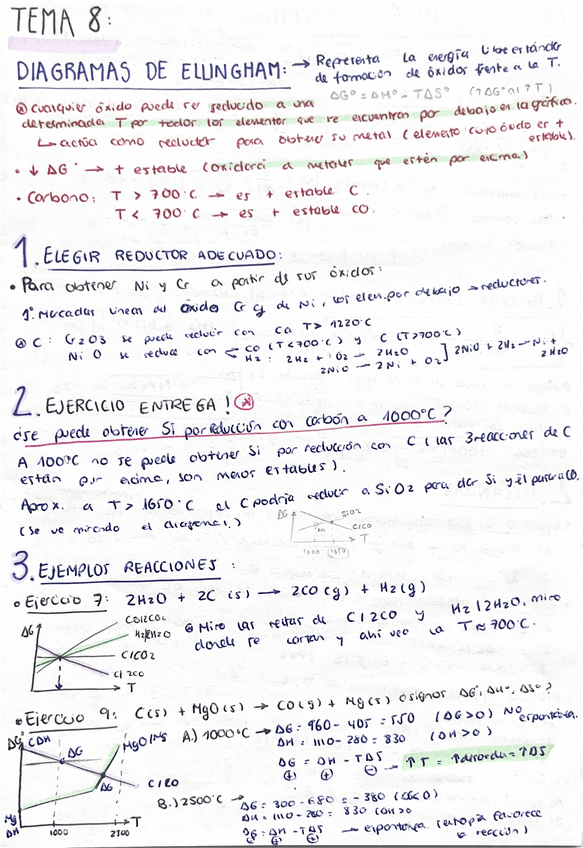 TEMA 8:
DIAGRAMAS DE ELLINGHAM: → Representa la energía libre estándar
de formación de óxidos frente a la T.
ΔG° = ΔH° - TΔS° (?ΔG° a ?T)
cualquier óxido puede ser reducido a una
determinada T por todos los elementos que se encuentran por debajo en la gráfica.
↳ actúa como reductor para obtener su metal (elemento cuyo óxido es +
estable).
• ↓ ΔG° → + estable (oxidará a metales que estén por encima)
• Carbono: T > 700°C → es + estable C.
T < 700°C → es + estable CO.
1. ELEGIR REDUCTOR ADECUADO:
• Para obtener Ni y Cr a partir de sus óxidos:
1º Marcadas líneas del óxido Cr y de Ni, los elem. por debajo → reductores.
C: Cr2O3 se puede reducir con Ca T > 1220°C
NiO se reduce con CO (T<700°C) y C (T>700°C)
H2: 2H2 + O2 → 2H2O
2NiO → 2Ni + O2] 2NiO + 2H2 → Ni +
2H2O
2. EJERCICIO ENTREGA!
¿se puede obtener Si por reducción con carbón a 1000°C?
A 1000°C no se puede obtener Si por reducción con C (las 3 reacciones de C
están por encima, son menos estables).
Aprox. a T > 1650°C el C podría reducir a SiO2 para dar Si y él pasar a CO.
(se ve mirando el diagrama.)
ΔG
SiO2
C/CO
1000 1650 T
3. EJEMPLOS REACCIONES:
• Ejercicio 7: 2H2O + 2C (s) → 2CO (g) + H2 (g)
ΔG
CO/2CO2
H2/H2O
C/CO2
C/2CO
T
Miro las rectas de C/2CO y H2/2H2O, miro
donde se cortan y ahí veo la T ≈ 700°C.
• Ejercicio 9: C(s) + MgO(s) → CO(g) + Mg(s) ¿signos ΔG°, ΔH°, ΔS°?
A.) 1000°C → ΔG = 960 - 405 = 550 (ΔG>0) NO espontánea.
ΔH = 1110 - 280 = 830 (ΔH>0)
ΔG = ΔH - TΔS → ↑T = ↑desorden = ↑ΔS
(+) (+) (-)
B.) 2500°C → ΔG = 300 - 680 = -380 (ΔG<0)
ΔH = 1110 - 280 = 830 (ΔH>0
ΔG = ΔH - TΔS → espontánea. (entropía favorece
la reacción)
ΔG°
ΔG
MgO/Mg
ΔG
Mg
ΔH
1000
T